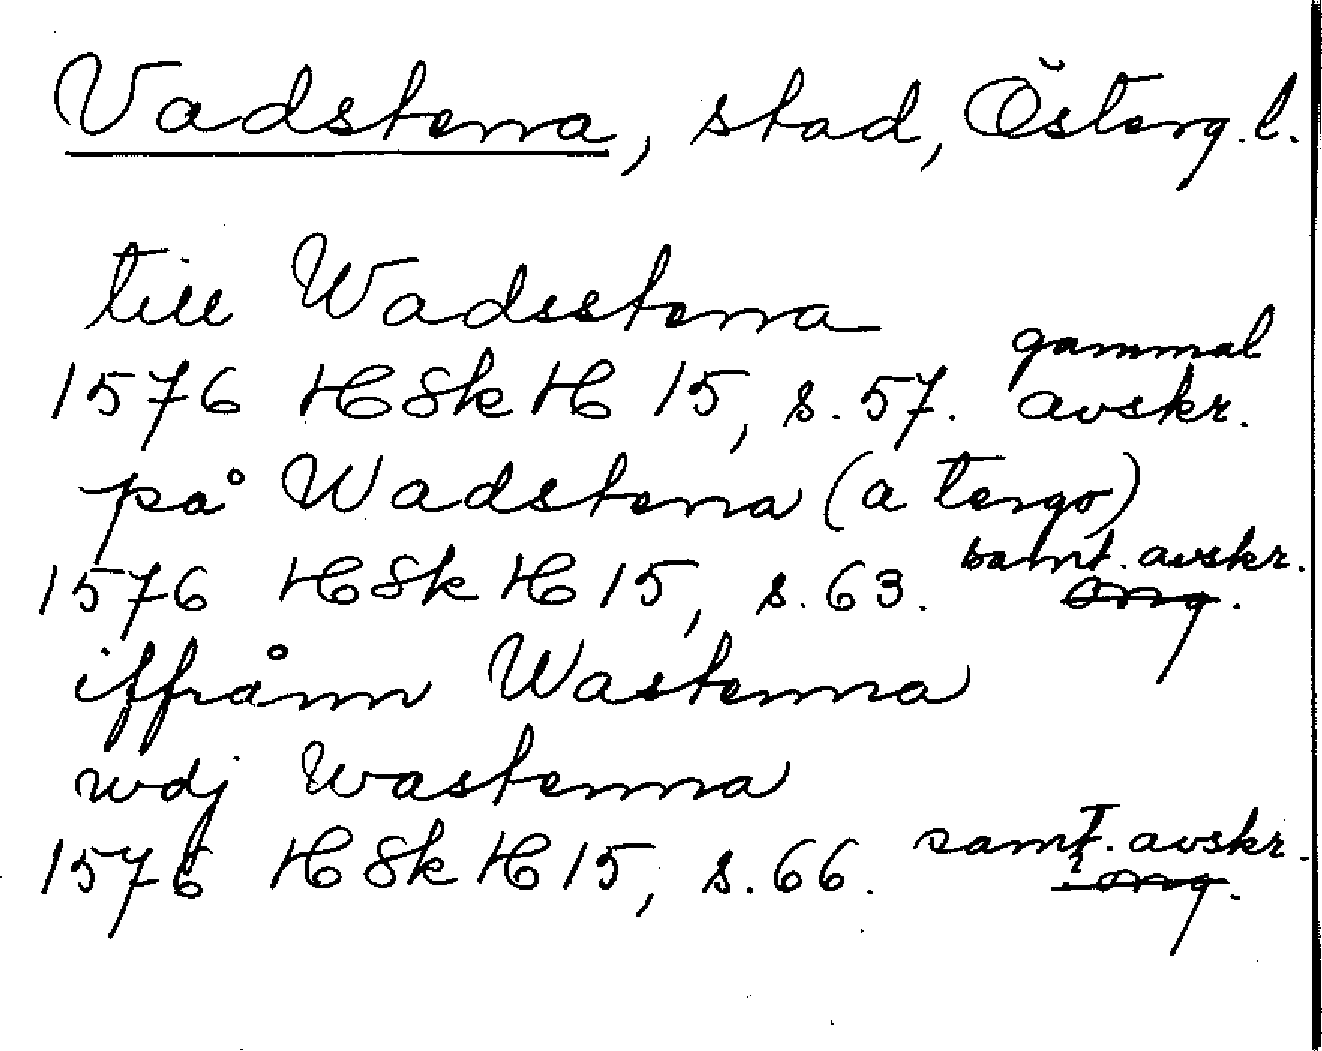 Vadstena, stad, Österg.l.
till Wadsstena
gammal
1576 HSkH 15, s. 57. avskr.
på Wadstena (a tergo)
samt. avskr.
1576 HSkH 15, s. 63.
iffrånn Wastenna
wdj Wastenna
samt. avskr.
1576 HSkH 15, s. 66.